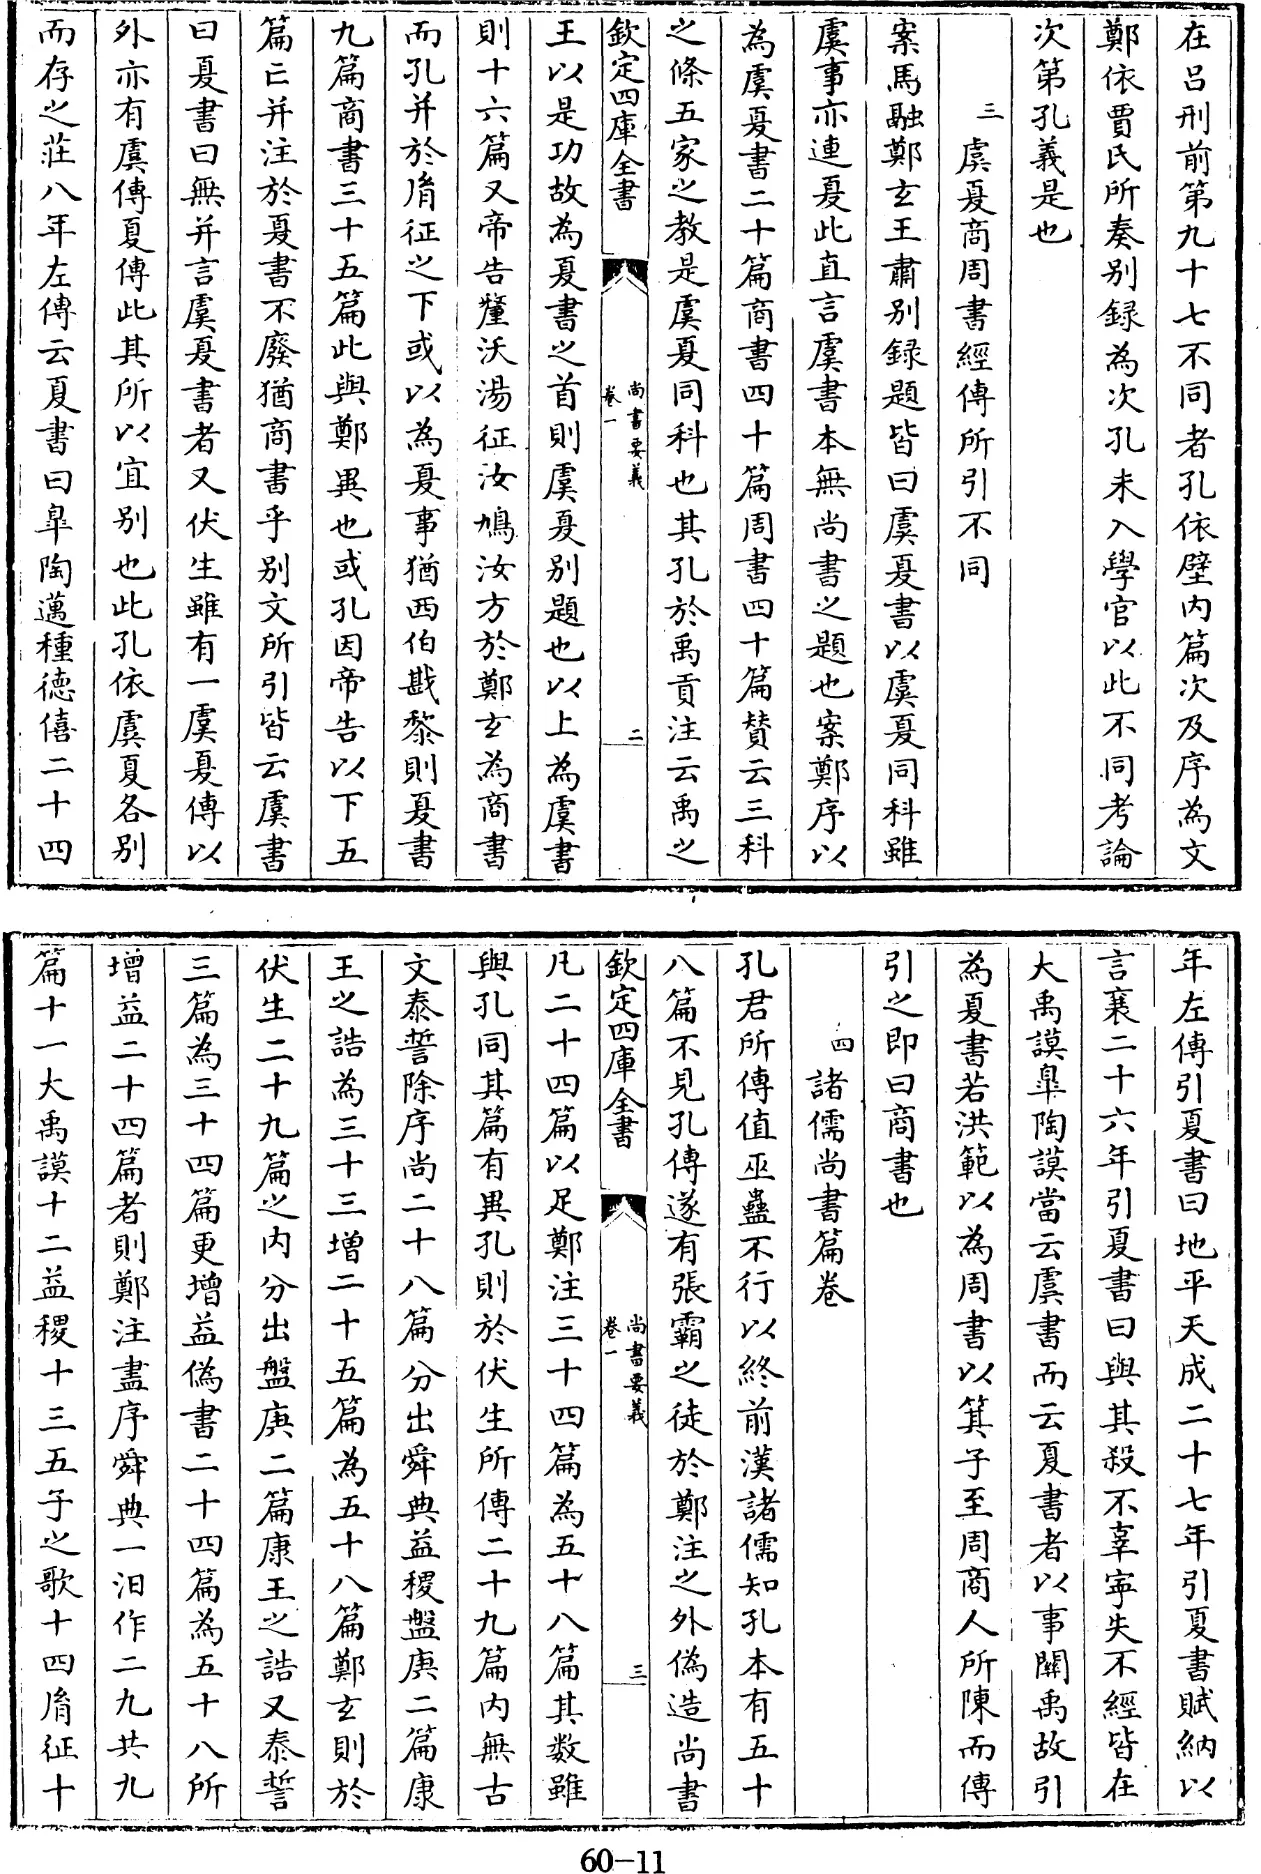 在呂刑前第九十七不同者孔依壁内篇次及序為文
鄭依賈氏所奏别録為次孔未入學官以此不同考論
次第孔義是也
三虞夏商周書經傳所引不同
案馬融鄭玄王肅别録題皆曰虞夏書以虞夏同科雖
虞事亦連夏此直言虞書本無尚書之題也案鄭序以
為虞夏書二十篇商書四十篇周書四十篇賛云三科
之條五家之教是虞夏同科也其孔於禹貢注云禹之
欽定四庫全書
尚書要義
卷一
二
王以是功故為夏書之首則虞夏别題也以上為虞書
則十六篇又帝告釐沃湯征汝鳩汝方於鄭玄為商書
而孔并於胤征之下或以為夏事猶西伯戡黎則夏書
九篇商書三十五篇此與鄭異也或孔因帝告以下五
篇亡并注於夏書不廢猶商書乎别文所引皆云虞書
曰夏書曰無并言虞夏書者又伏生雖有一虞夏傳以
外亦有虞傳夏傳此其所以宜别也此孔依虞夏各别
而存之莊八年左傳云夏書曰臯陶邁種德僖二十四
年左傳引夏書曰地平天成二十七年引夏書賦納以
言襄二十六年引夏書曰與其殺不辜寜失不經皆在
大禹謨臯陶謨當云虞書而云夏書者以事關禹故引
為夏書若洪範以為周書以箕子至周商人所陳而傳
引之即曰商書也
四諸儒尚書篇卷
孔君所傳值巫蠱不行以終前漢諸儒知孔本有五十
八篇不見孔傳遂有張霸之徒於鄭注之外偽造尚書
欽定四庫全書
尚書要義
卷一
三
凡二十四篇以足鄭注三十四篇為五十八篇其數雖
與孔同其篇有異孔則於伏生所傳二十九篇内無古
文泰誓除序尚二十八篇分出舜典益稷盤庚二篇康
王之誥為三十三增二十五篇為五十八篇鄭玄則於
伏生二十九篇之内分出盤庚二篇康王之誥又泰誓
三篇為三十四篇更增益偽書二十四篇為五十八所
增益二十四篇者則鄭注盡序舜典一汩作二九共九
篇十一大禹謨十二益稷十三五子之歌十四胤征十
60-11